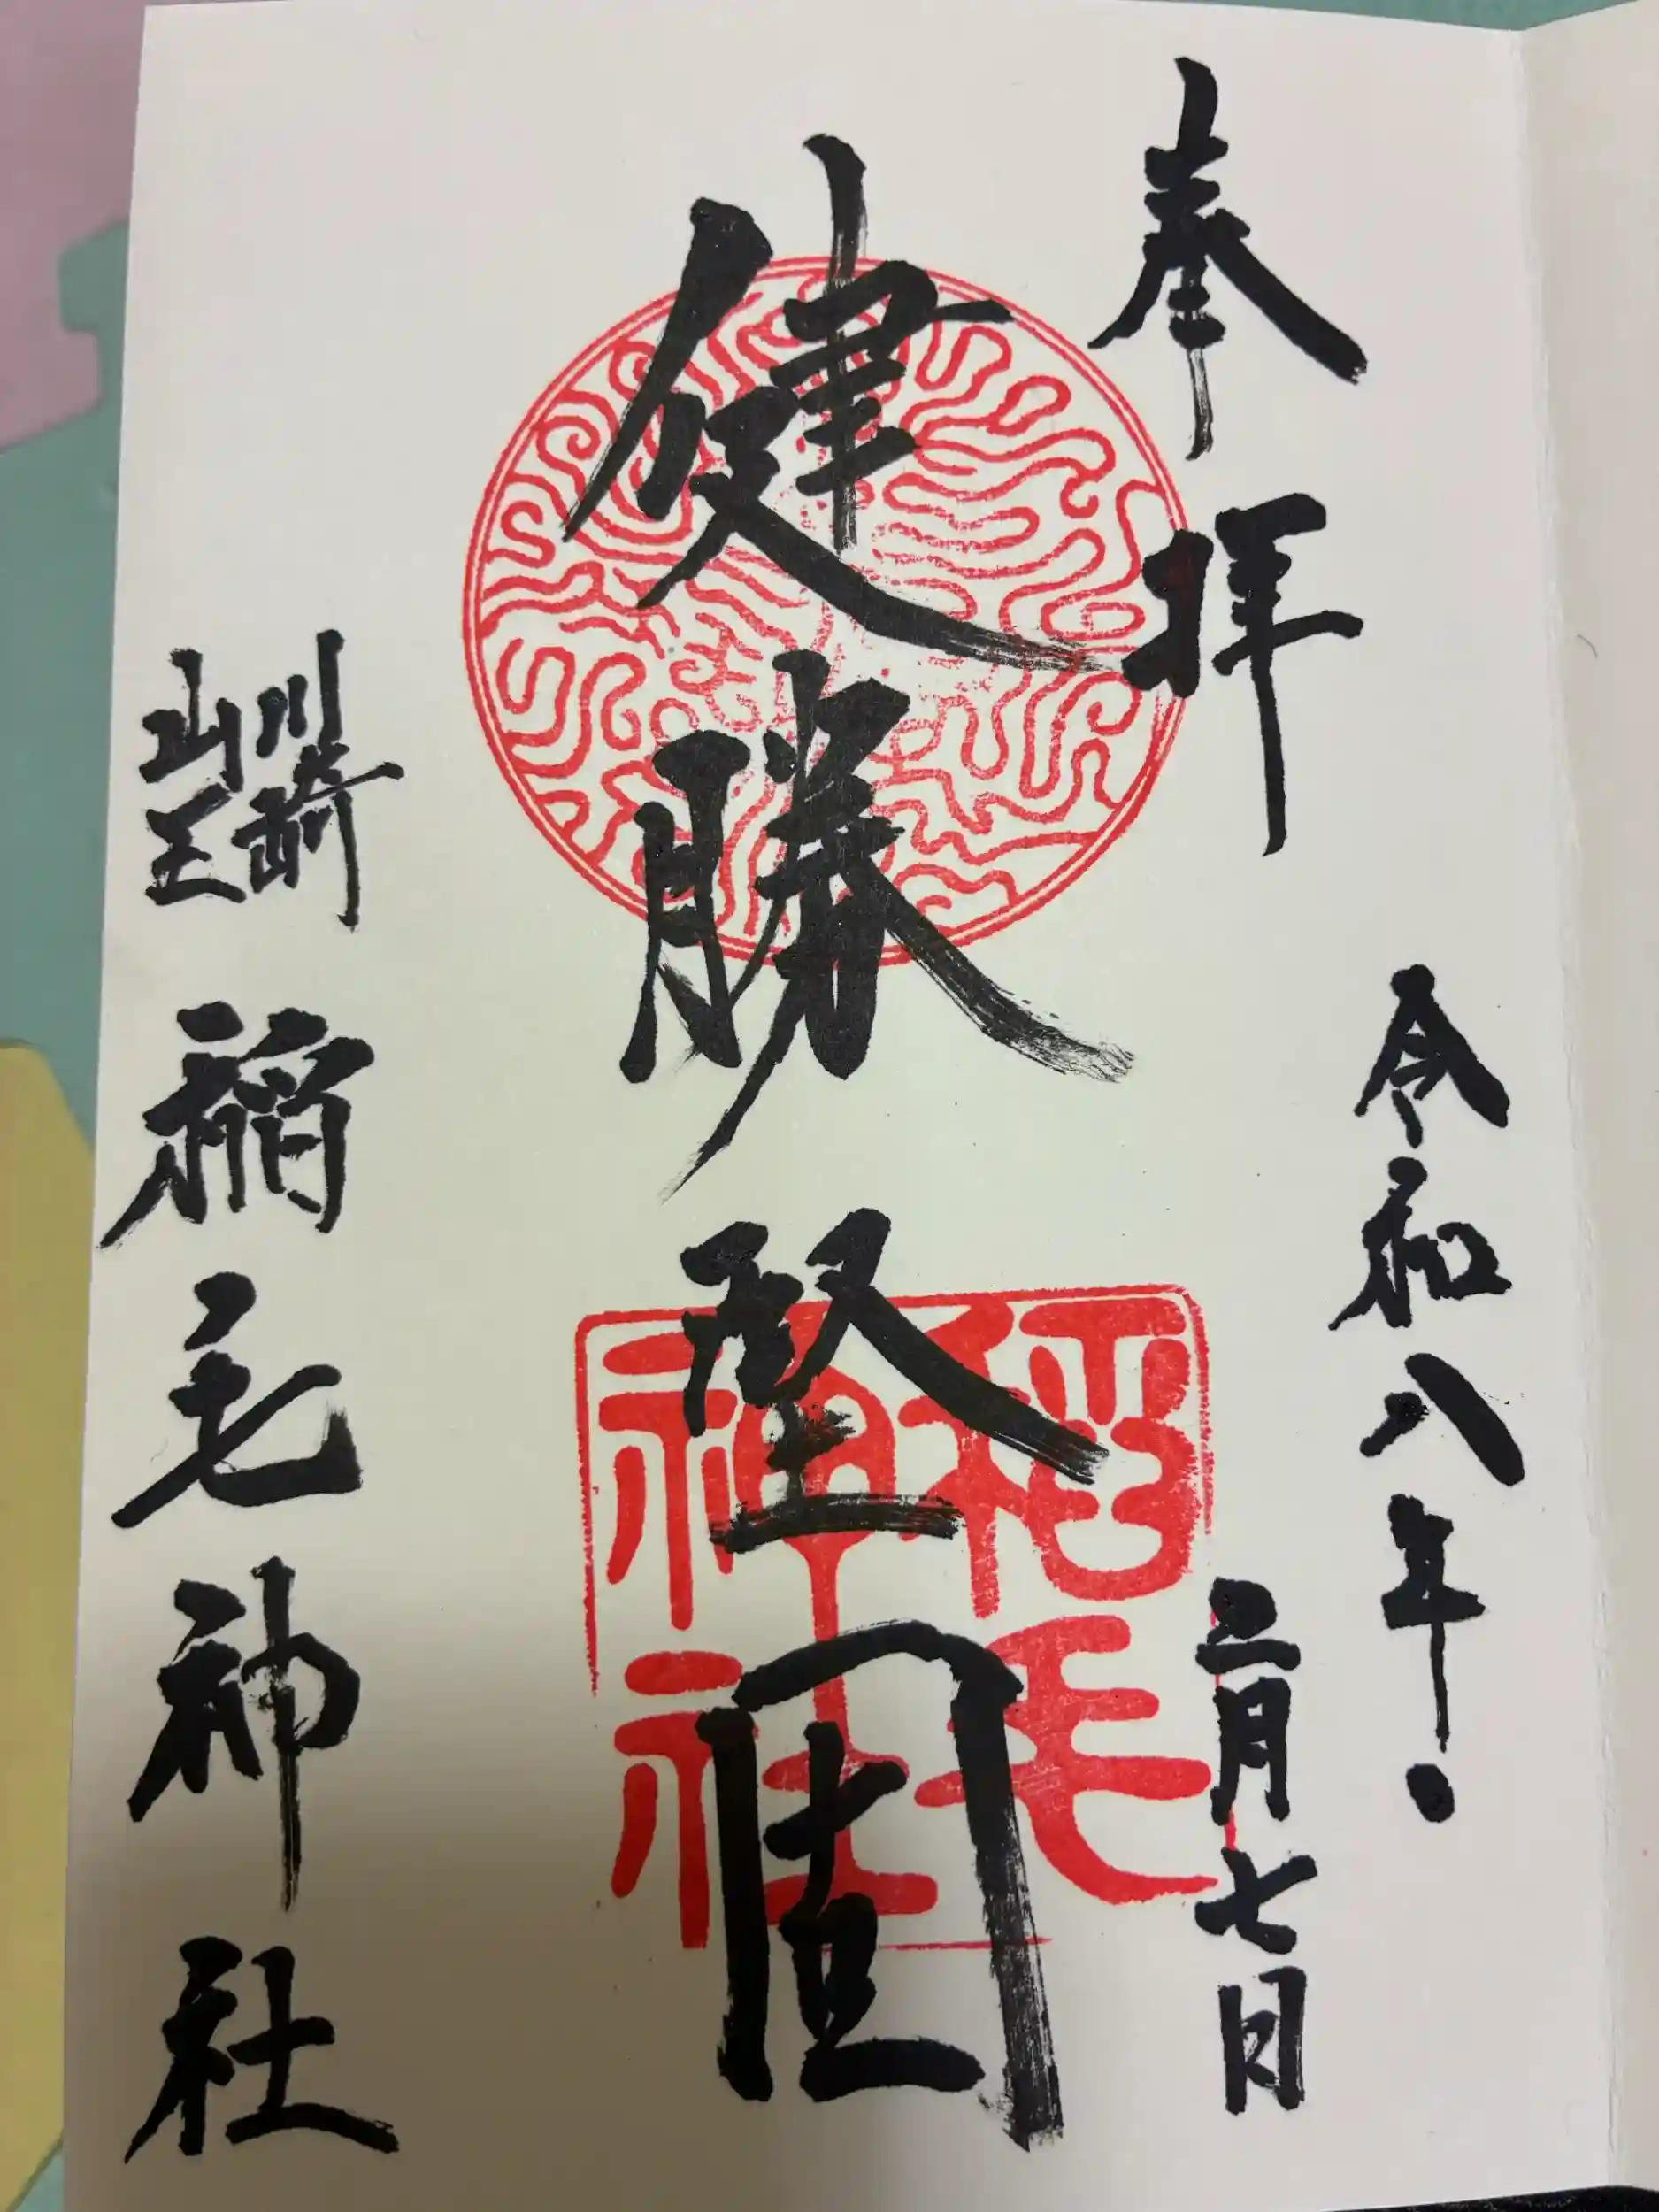 奉拝
令和八年
二月七日
健勝堅固
川崎
山王
稲毛神社
稲毛
神社